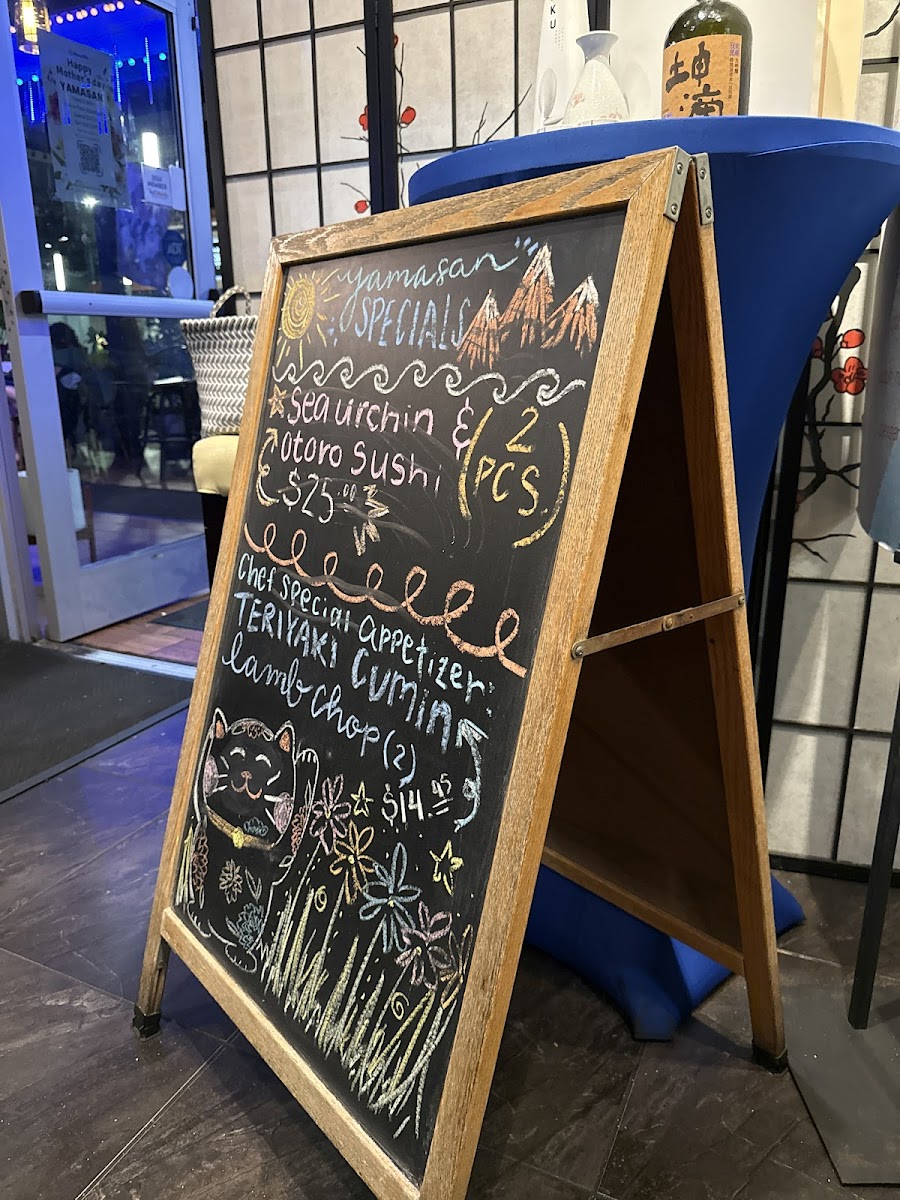 KU
坤滴
Happy
Mother's day
YAMASAN
MEMBER
yamasan
SPECIALS
sea urchin &
otoro sushi
(2
PCS)
$25.00
chef special appetizer:
TERIYAKI cumin
lamb chop (2)
$14.95